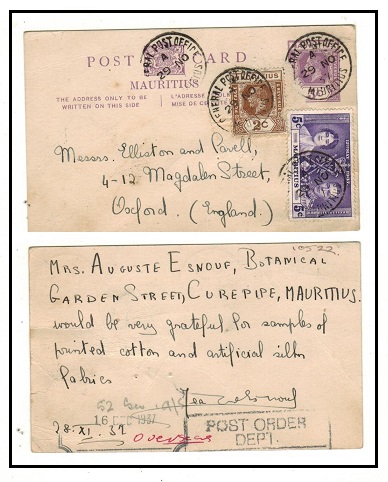 POST CARD
MAURITIUS
THE ADDRESS ONLY TO BE
WRITTEN ON THIS SIDE
L'ADRESSE
MISE DE
GENERAL POST OFFICE
MAURITIUS
A
29 NO
2c
5c
MAURITIUS
5c
Messrs. Elliston and Cavell,
4-12 Magdalen Street,
Oxford. (England).
10522
MRS. AUGUSTE ESNOUF, BOTANICAL
GARDEN STREET, CUREPIPE, MAURITIUS.
would be very grateful for samples of
printed cotton and artificial silk
fabrics
Esnouf
16 DEC 1937
POST ORDER
DEPT.
28. XI. 37
Overseas